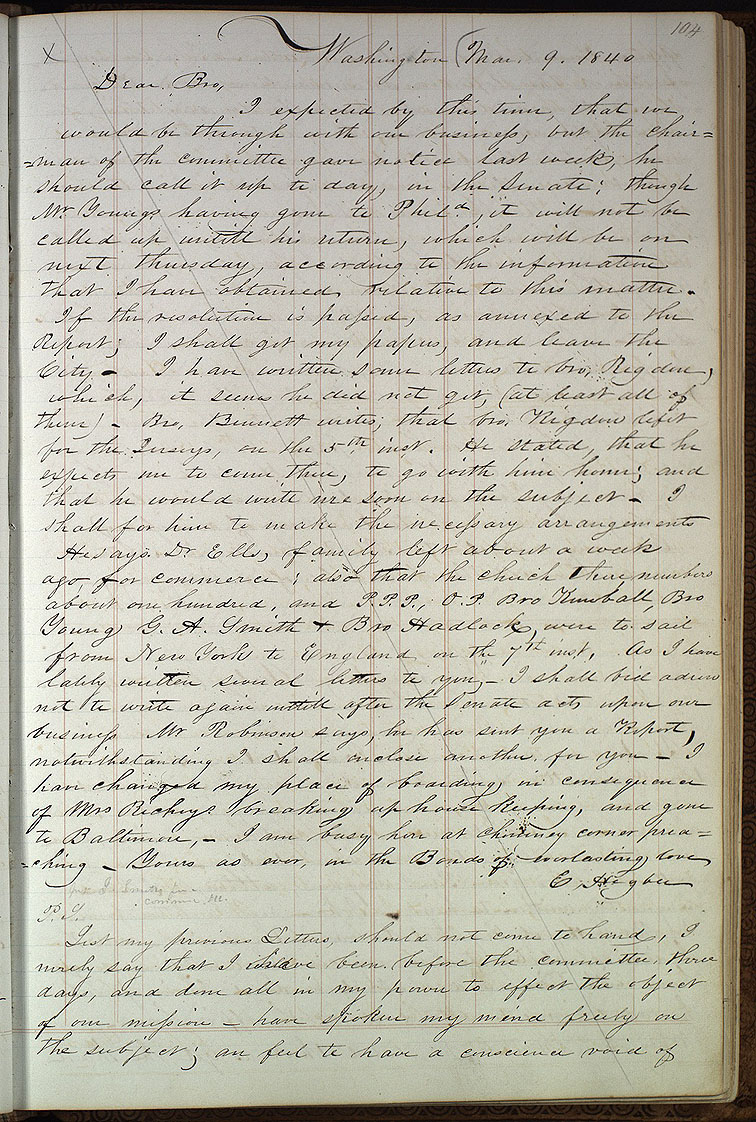 104
X Washington Mar. 9. 1840
Dear Bro,
I expected by this time, that we
would be through with our business, but the chair=
=man of the committee gave notice last week, he
should call it up to day, in the Senate; though
Mr Youngs having gone to Phild, it will not be
called up untill his return, which will be on
next thursday, according to the information
that I have obtained, relative to this matter.
If the resolution is passed, as annexed to the
Report; I shall get my papers, and leave the
City — I have written some letters to bro, Rigdon,
which, it seems he did not get, (at least all of
them) — Bro, Bennett writes, that bro, Rigdon left
for the Jerseys, on the 5th inst. He stated, that he
expects me to come there, to go with him home; and
that he would write me soon on the subject — I
shall for him to make the necessary arrangements
He says Dr Ells, family left about a week
ago for commerce; also that the church there numbers
about one hundred, and P.P.P., O.P. Bro Kimball, Bro
Young, G. A. Smith & Bro Hadlock, were to sail
from New York to England, on the 7th inst. As I have
lately written several letters to you, — I shall bid adieu
not to write again untill after the Senate acts upon our
business Mr Robinson says, he has sent you a Report,
notwithstanding I shall inclose another for you — I
have changed my place of boarding, in consequence
of Mrs Richeys breaking up house keeping, and gone
to Baltimore, — I am busy here at chimney corner prea=
=ching — Yours as ever, in the Bonds of everlasting love
E. Higbee
P.S.
Lest my previous Letters, should not come to hand, I
merely say that I have been before the committee, three
days, and done all in my power to effect the object
of our mission — have spoken my mind freely on
the subject; an feel to have a conscience void of